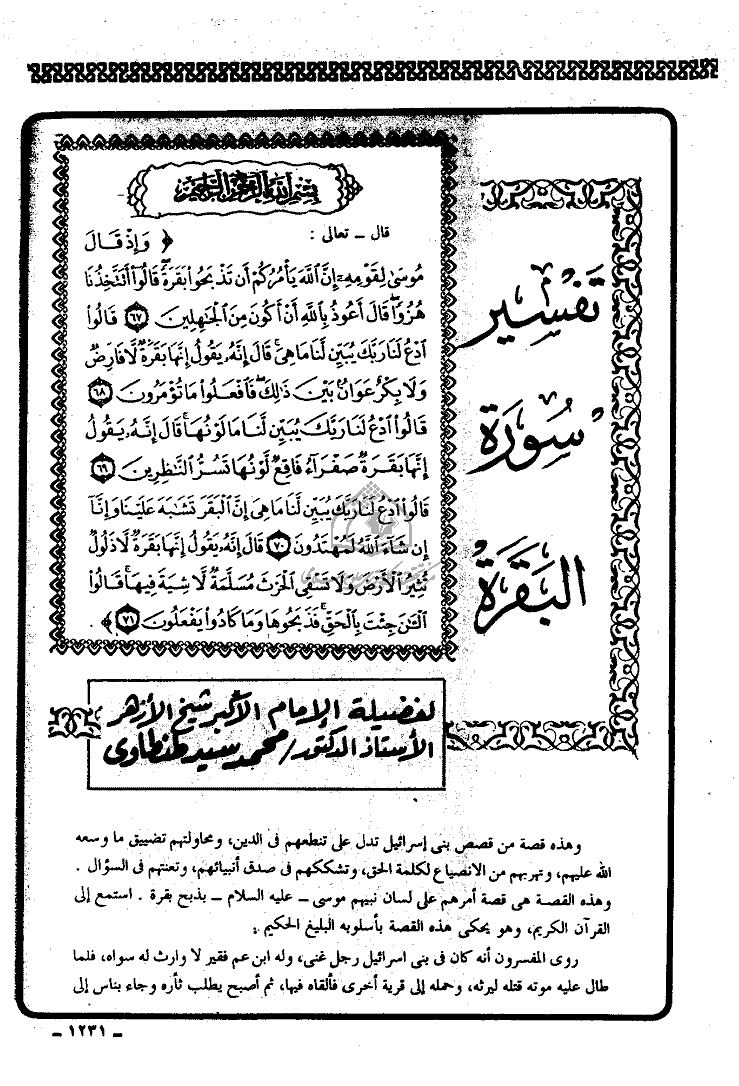 تفسير
سورة
البقرة
بِسْمِ اللَّهِ الرَّحْمَٰنِ الرَّحِيمِ
قال ــ تعالى : ﴿ وَإِذْ قَالَ
مُوسَىٰ لِقَوْمِهِۦٓ إِنَّ ٱللَّهَ يَأْمُرُكُمْ أَن تَذْبَحُوا۟ بَقَرَةً ۖ قَالُوٓا۟ أَتَتَّخِذُنَا
هُزُوًا ۖ قَالَ أَعُوذُ بِٱللَّهِ أَنْ أَكُونَ مِنَ ٱلْجَـٰهِلِينَ ٦٧ قَالُوا۟
ٱدْعُ لَنَا رَبَّكَ يُبَيِّن لَّنَا مَا هِىَ ۚ قَالَ إِنَّهُۥ يَقُولُ إِنَّهَا بَقَرَةٌ لَّا فَارِضٌ
وَلَا بِكْرٌ عَوَانٌۢ بَيْنَ ذَٰلِكَ ۖ فَٱفْعَلُوا۟ مَا تُؤْمَرُونَ ٦٨
قَالُوا۟ ٱدْعُ لَنَا رَبَّكَ يُبَيِّن لَّنَا مَا لَوْنُهَا ۚ قَالَ إِنَّهُۥ يَقُولُ
إِنَّهَا بَقَرَةٌ صَفْرَآءُ فَاقِعٌ لَّوْنُهَا تَسُرُّ ٱلنَّـٰظِرِينَ ٦٩
قَالُوا۟ ٱدْعُ لَنَا رَبَّكَ يُبَيِّن لَّنَا مَا هِىَ إِنَّ ٱلْبَقَرَ تَشَـٰبَهَ عَلَيْنَا وَإِنَّآ
إِن شَآءَ ٱللَّهُ لَمُهْتَدُونَ ٧٠ قَالَ إِنَّهُۥ يَقُولُ إِنَّهَا بَقَرَةٌ لَّا ذَلُولٌ
تُثِيرُ ٱلْأَرْضَ وَلَا تَسْقِى ٱلْحَرْثَ مُسَلَّمَةٌ لَّا شِيَةَ فِيهَا ۚ قَالُوا۟
ٱلْـَٔـٰنَ جِئْتَ بِٱلْحَقِّ ۚ فَذَبَحُوهَا وَمَا كَادُوا۟ يَفْعَلُونَ ٧١ ﴾ .
لفضيلة الإمام الأكبر شيخ الأزهر
الأستاذ الدكتور/ محمد سيد طنطاوى
وهذه قصة من قصص بنى إسرائيل تدل على تنطعهم فى الدين، ومحاولتهم تضييق ما وسعه
الله عليهم، وتهربهم من الانصياع لكلمة الحق، وتشككهم فى صدق أنبيائهم، وتعنتهم فى السؤال .
وهذه القصة هى قصة أمرهم على لسان نبيهم موسى ــ عليه السلام ــ بذبح بقرة . استمع إلى
القرآن الكريم، وهو يحكى هذه القصة بأسلوبه البليغ الحكيم .
روى المفسرون أنه كان فى بنى اسرائيل رجل غنى، وله ابن عم فقير لا وارث له سواه، فلما
طال عليه موته قتله ليرثه، وحمله إلى قرية أخرى فألقاه فيها، ثم أصبح يطلب ثأره وجاء بناس إلى
ــ ١٢٣١ ــ